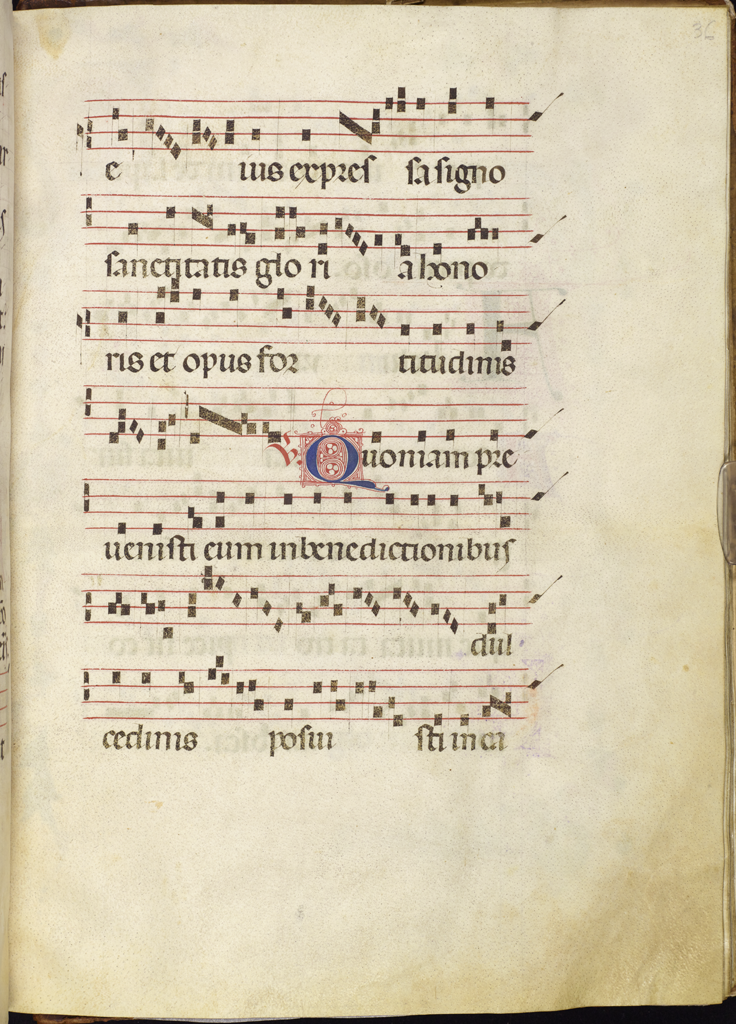 36
e ius expres sa signo
sanctitatis glo ri a hono
ris et opus for titudinis
V. Quoniam pre
uenisti eum in benedictionibus
dul
cedinis posui sti in ca